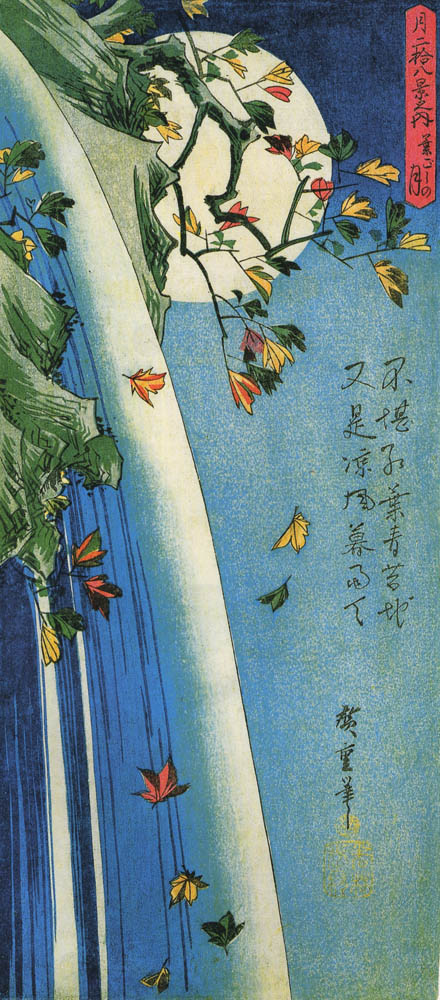 月二拾八景之内
葉ごしの
月
不堪紅葉青苔地
又是涼風暮雨天
廣重筆